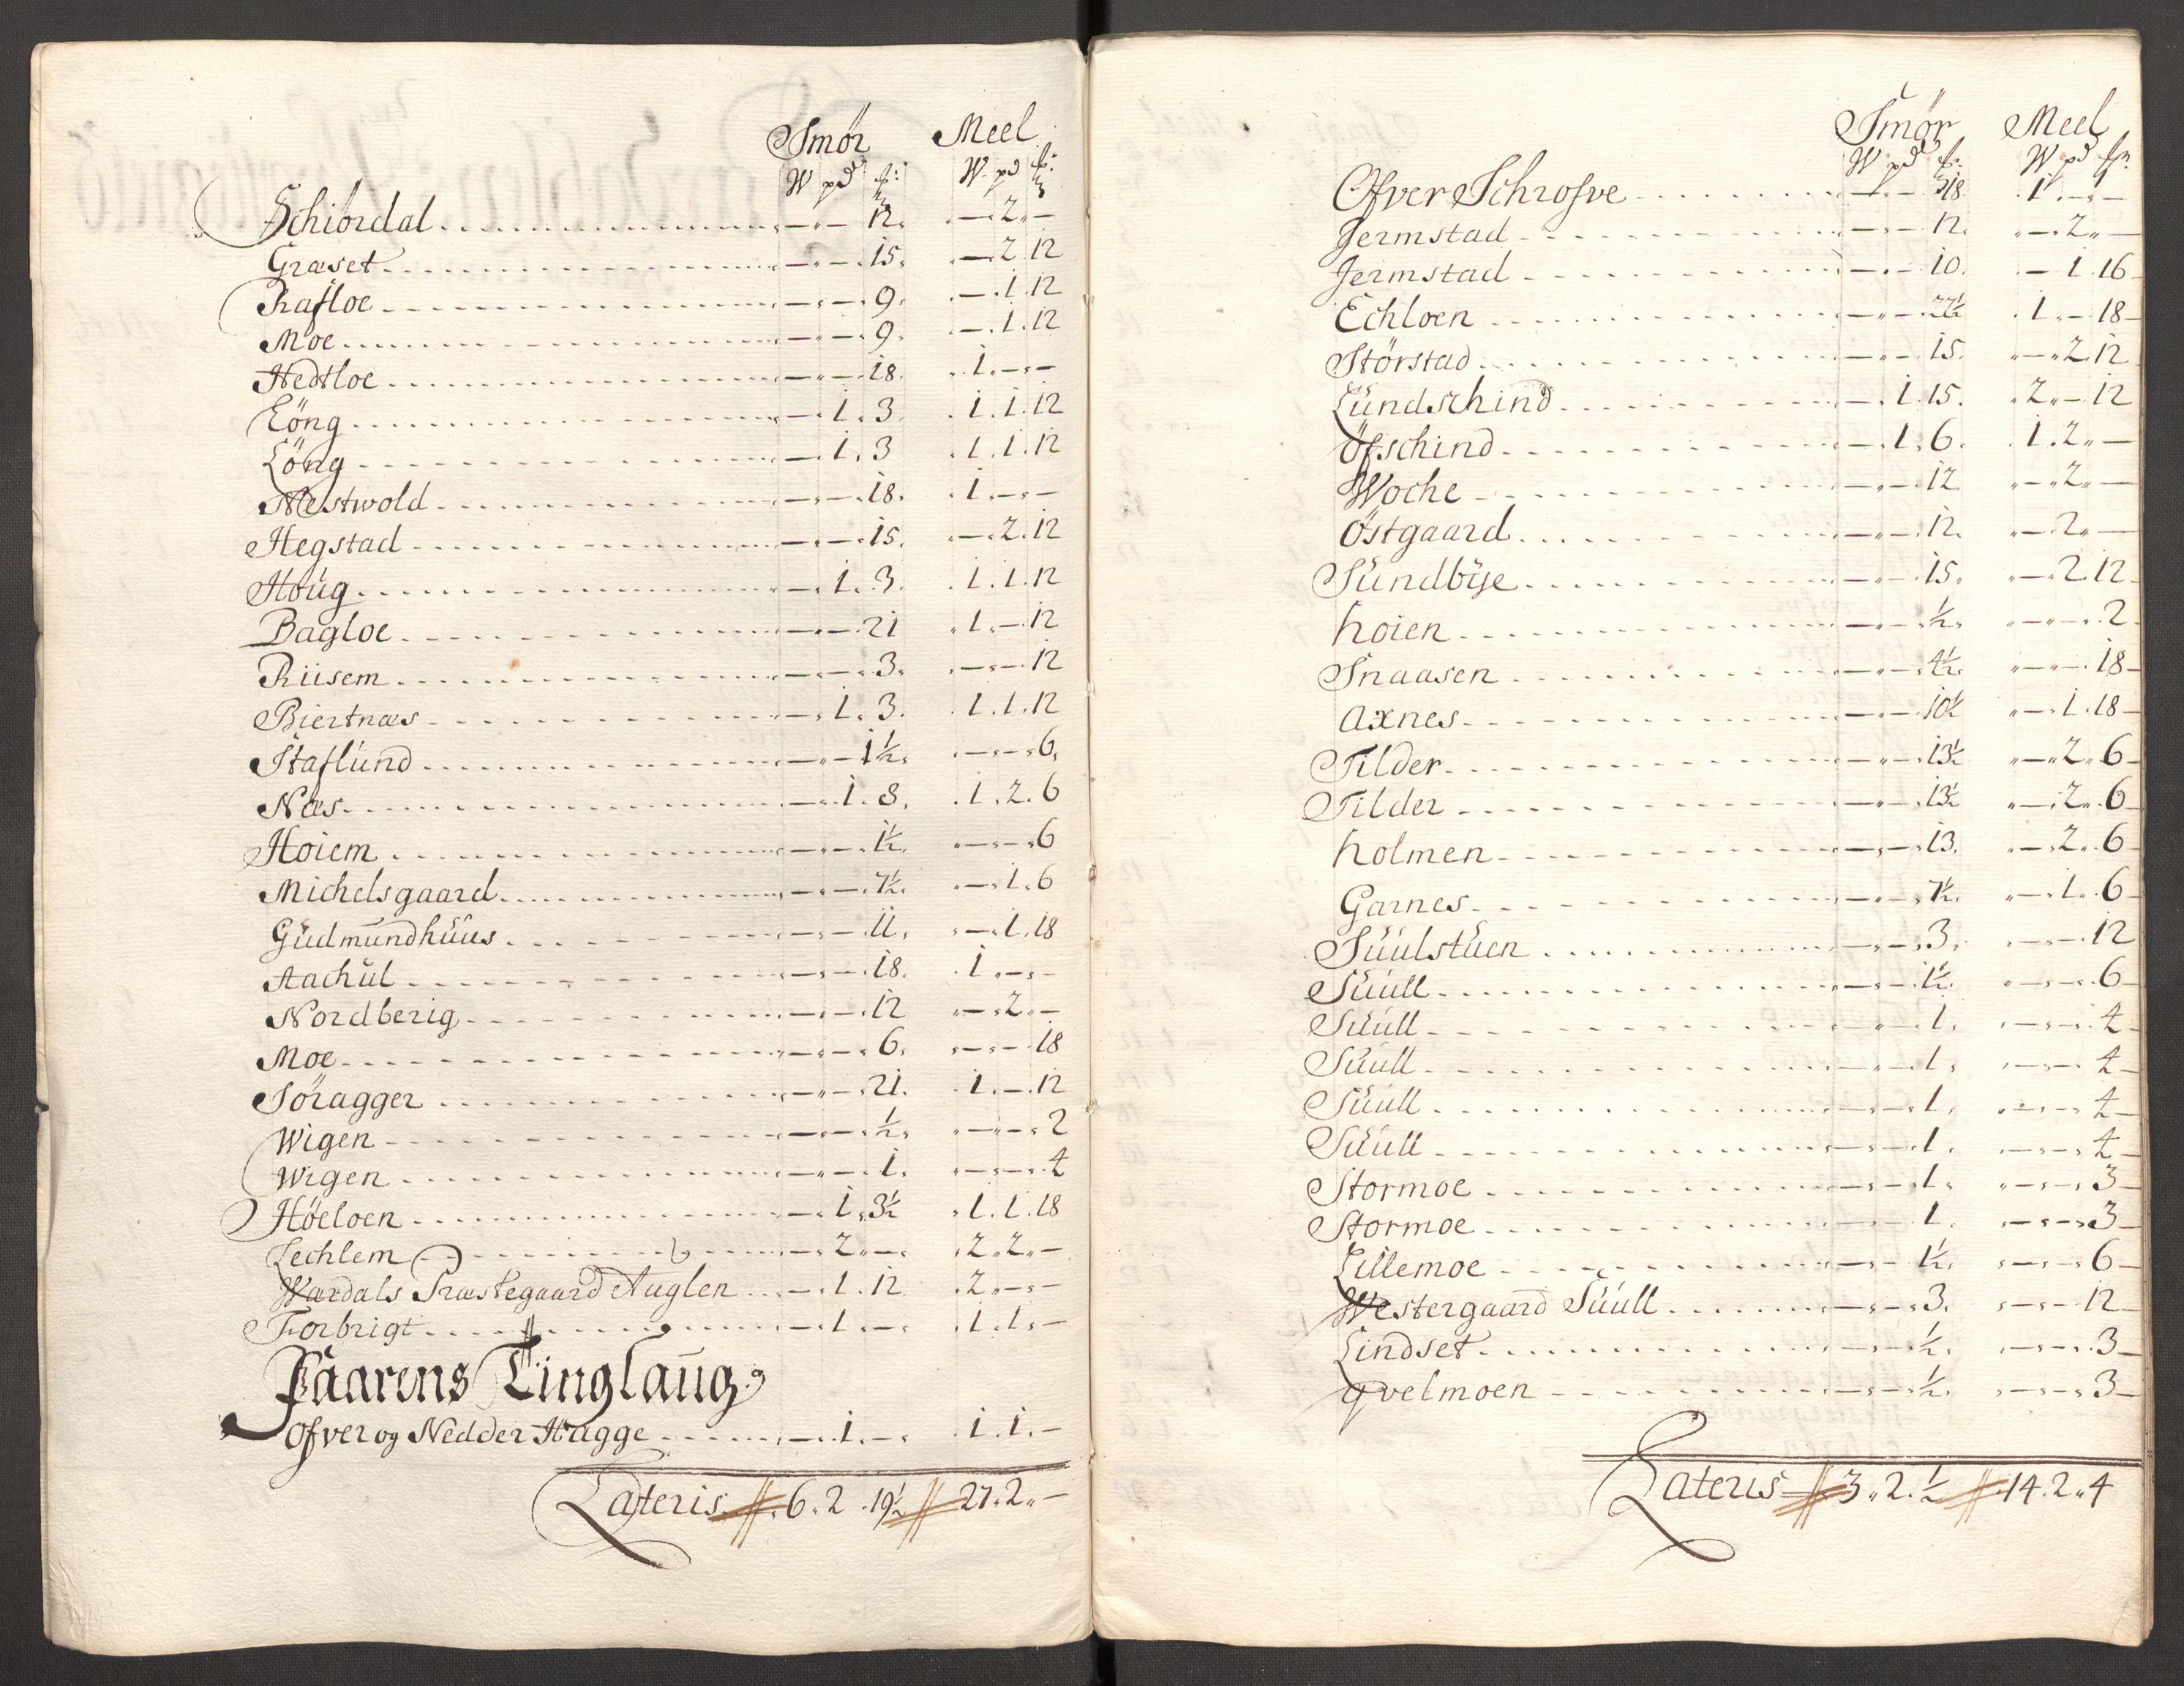 Smör Meel
W pd ℔: W pd ℔:
Schiördal - - 12. - 2 -
Græset - - 15. - 2 12
Rafloe - - 9. - 1. 12
Moe - - 9. - 1. 12
Hedtloe - - 18. 1. - -
Löng - 1. 3. 1. 1. 12
Löng - 1. 3 1. 1. 12
Nestwold - - 18. 1. - -
Hegstad - - 15. - 2. 12
Houg - 1. 3. 1. 1. 12
Bagloe - - 21 1. - 12
Riisem - - 3. - - 12
Biertnæs - 1. 3. 1. 1. 12
Staflund - - 1½. - - 6.
Næs - 1. 8. 1. 2. 6
Hoiem - - 1½. - - 6
Michelsgaard - - 7½. - 1. 6
Gudmundhuus - - 11. - 1. 18
Aachul - - 18. 1 - -
Nordberig - - 12 - 2 -
Moe - - 6. - - 18
Söragger - - 21. 1. - 12
Wigen - - ½. - - 2
Wigen - - 1. - - 4
Höeloen - 1. 3½ 1. 1. 18
Lechlem - 2 - 2. 2. -
Wærdals Præstegaard Auglen - 1. 12 2 - -
Forbrigt - 1. - 1. 1. -
Faarens Tinglaug
Ofver og Nedder Hagge - 1. - 1. 1. -
Lateris 6. 2. 19½ 27. 2. -
Smör Meel
W pd ℔: W pd ℔:
Ofver Schrofve - - 18. 1. - -
Jermstad - - 12. - 2. -
Jermstad - - 10. - 1. 16
Echloen - - 22½ 1. - 18
Störstad - - 15. - 2. 12
Lundschind - 1. 15. 2. - 12
Öfschind - 1. 6. 1. 2. -
Woche - - 12. - 2. -
Östgaard - - 12. - 2. -
Sundbÿe - - 15. - 2. 12
hoien - - ½. - - 2
Snaasen - - 4½. - - 18
Axnes - - 10½ - 1. 18
Tilder - - 13½ - 2. 6
Tilder - - 13½ - 2. 6
holmen - - 13. - 2. 6
Garnes - - 7½. - 1. 6
Suulstuen - - 3. - - 12
Suull - - 1½. - - 6
Suull - - 1. - - 4
Suull - - 1. - - 4
Suull - - 1. - - 4
Suull - - 1. - - 4
Stormoe - - 1. - - 3
Stormoe - - 1. - - 3
Lillemoe - - 1½. - - 6
Westergaard Suull - - 3. - - 12
Lindset - - ½. - - 3
qvelmoen - - ½. - - 3
Lateris 3. 2. ½ 14. 2. 4